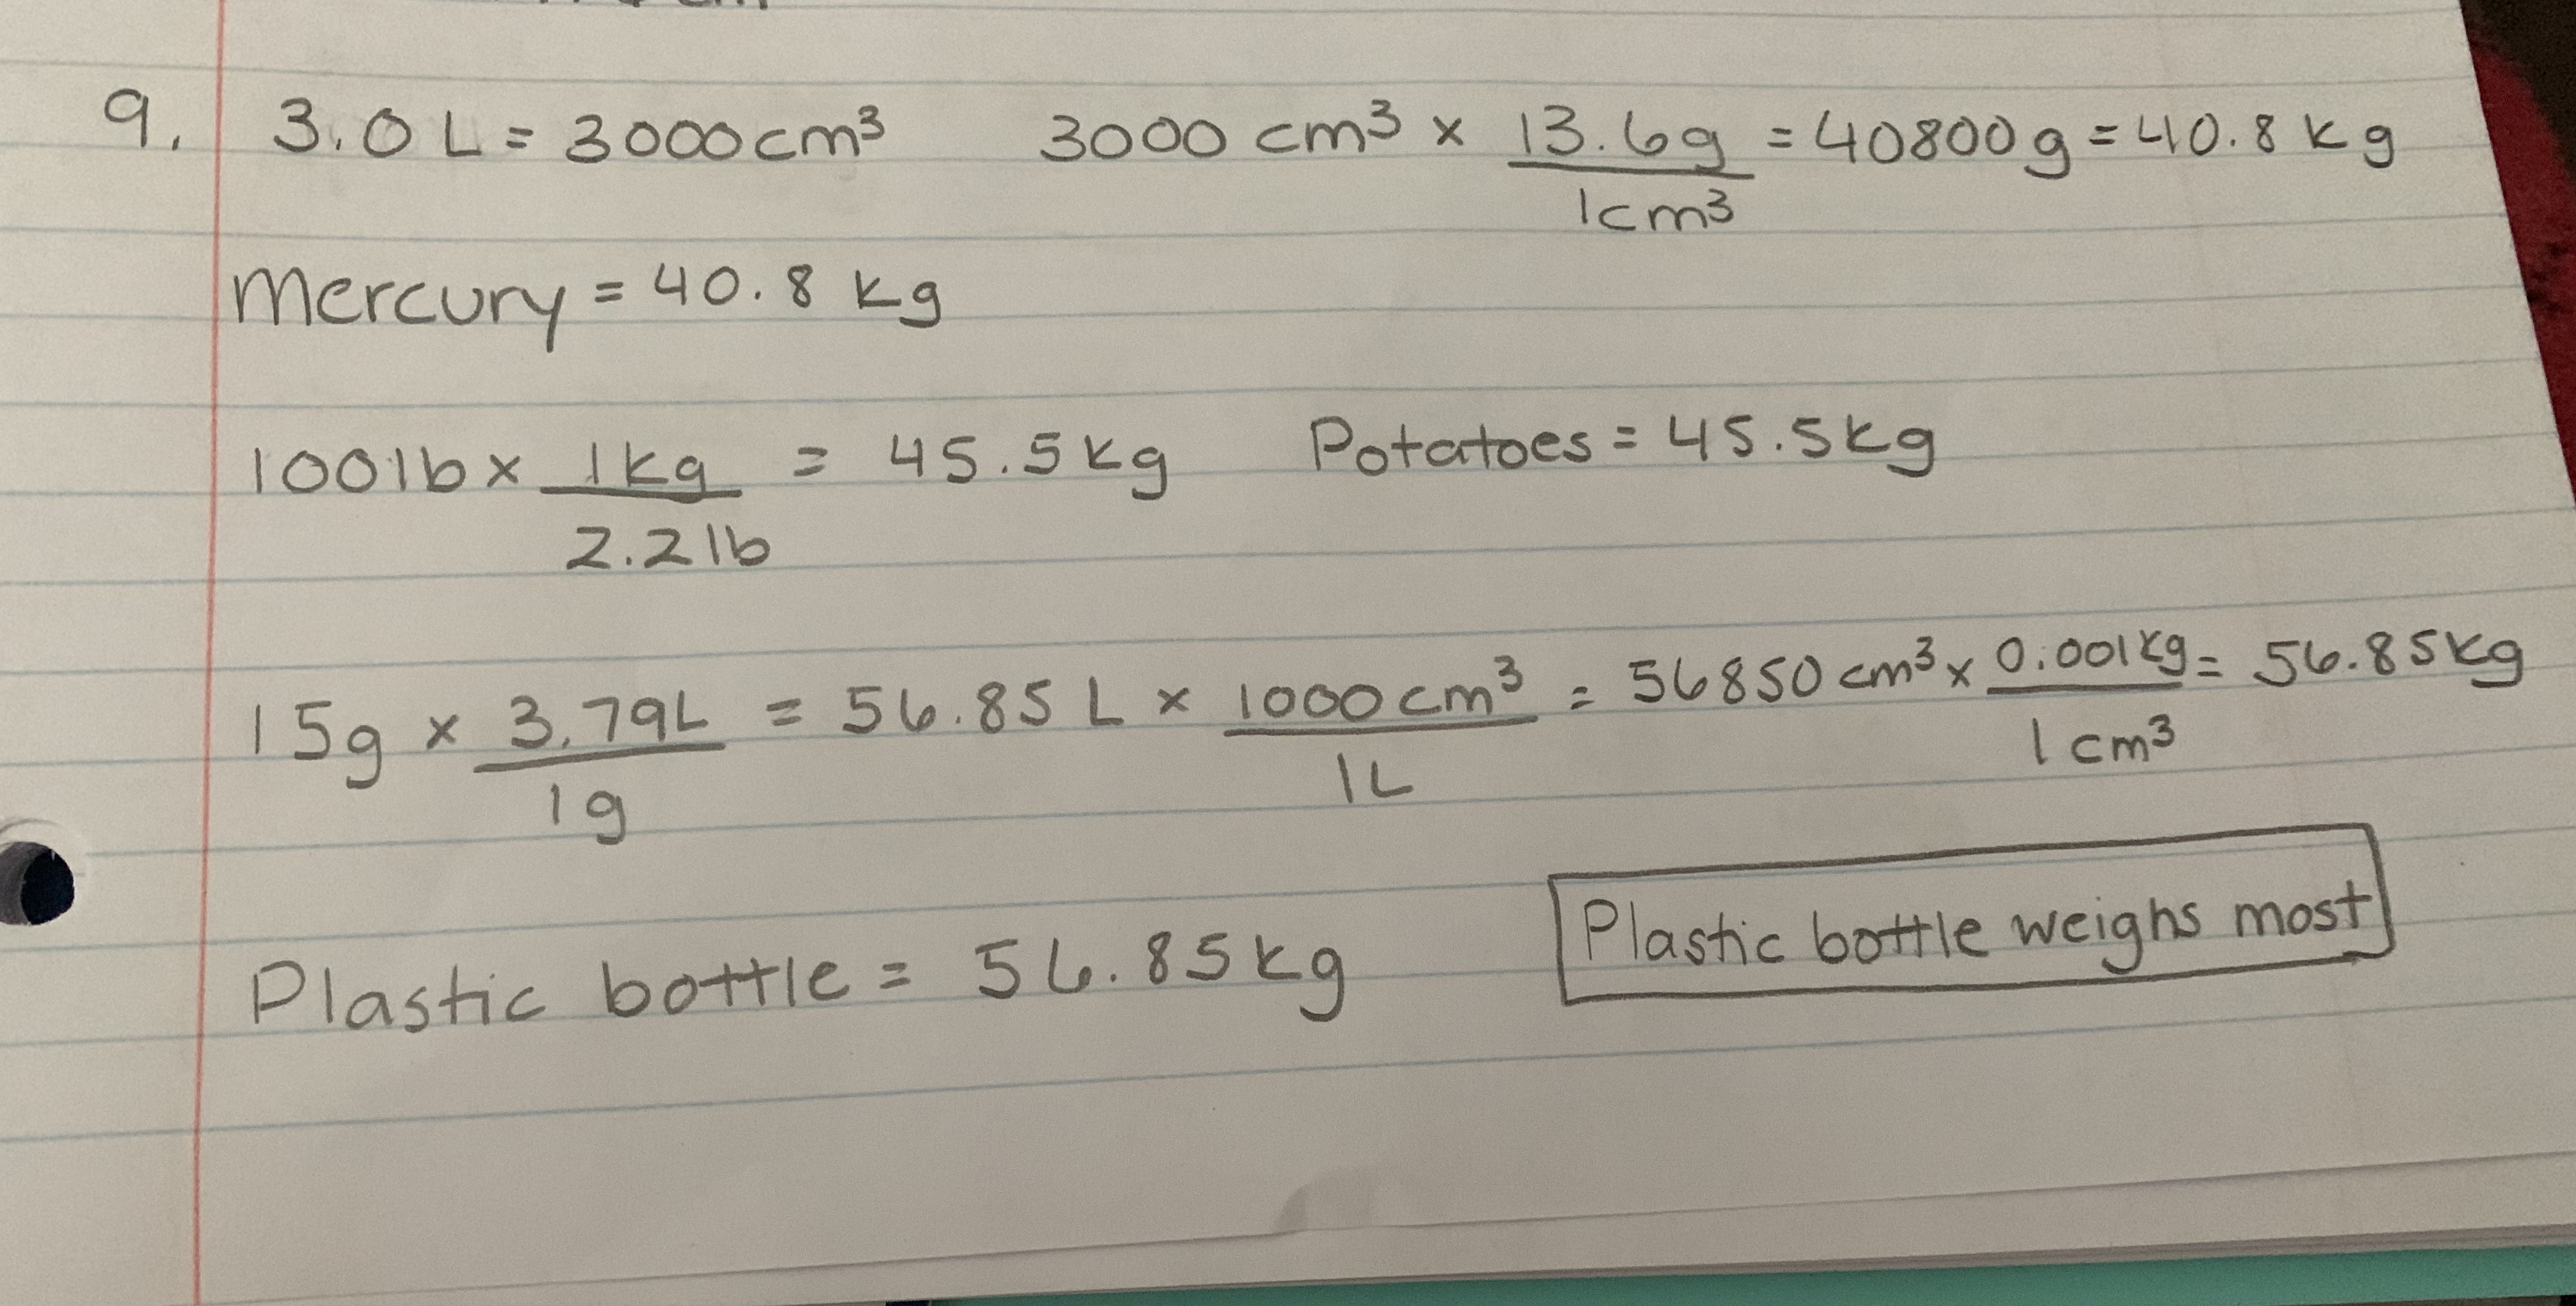 9. 3.0 L = 3000 cm³ 3000 cm³ x 13.6g/1cm³ = 40800g = 40.8 kg
Mercury = 40.8 kg
100lb x 1kg/2.2lb = 45.5kg Potatoes = 45.5kg
15g x 3.79L/1g = 56.85 L x 1000cm³/1L = 56850 cm³ x 0.001kg/1cm³ = 56.85kg
Plastic bottle = 56.85kg Plastic bottle weighs most